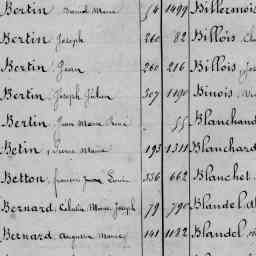 Bertin 56 1499 Billermois
Bertin Joseph 260 82 Billois
Bertin Jean 260 216 Billois
Bertin Joseph Julien 507 1190 Binois
Bertin Jean Marie René 55 Blanchard
Betin Pierre Marie 193 1311 Blanchard
Betton 336 662 Blanchet
Bernard Célestin Marie Joseph 79 790 Blandel
Bernard Augustin Marie 141 1182 Blandel